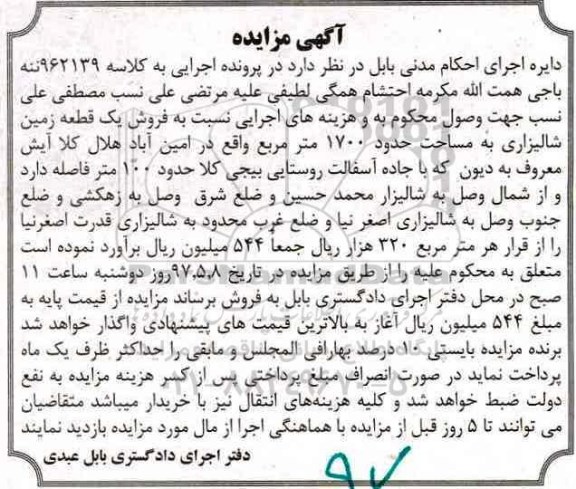 آگهی مزایده
دایره اجرای احکام مدنی بابل در نظر دارد در پرونده اجرایی به کلاسه ۹۶۲۱۳۹ننه
باجی همت الله مکرمه احتشام همگی لطیفی علیه مرتضی علی نسب مصطفی علی
نسب جهت وصول محکوم به و هزینه های اجرایی نسبت به فروش یک قطعه زمین
شالیزاری به مساحت حدود ۱۷۰۰ متر مربع واقع در امین آباد هلال کلا آیش
معروف به دیون که با جاده آسفالت روستایی بیجی کلا حدود ۱۰۰ متر فاصله دارد
و از شمال وصل به شالیزار محمد حسین و ضلع شرق وصل به زهکشی و ضلع
جنوب وصل به شالیزاری اصغر نیا و ضلع غرب محدود به شالیزاری قدرت اصغرنیا
را از قرار هر متر مربع ۳۲۰ هزار ریال جمعاً ۵۴۴ میلیون ریال برآورد نموده است
متعلق به محکوم علیه را از طریق مزایده در تاریخ ۹۷.۵.۸روز دوشنبه ساعت ۱۱
صبح در محل دفتر اجرای دادگستری بابل به فروش برساند مزایده از قیمت پایه به
مبلغ ۵۴۴ میلیون ریال آغاز به بالاترین قیمت های پیشنهادی واگذار خواهد شد
برنده مزایده بایستی ۱۰ درصد بهارافی المجلس و مابقی را حداکثر ظرف یک ماه
پرداخت نماید در صورت انصراف مبلغ پرداختی پس از کسر هزینه مزایده به نفع
دولت ضبط خواهد شد و کلیه هزینه‌های انتقال نیز با خریدار میباشد متقاضیان
می توانند تا ۵ روز قبل از مزایده با هماهنگی اجرا از مال مورد مزایده بازدید نمایند
دفتر اجرای دادگستری بابل عبدی
۹۷